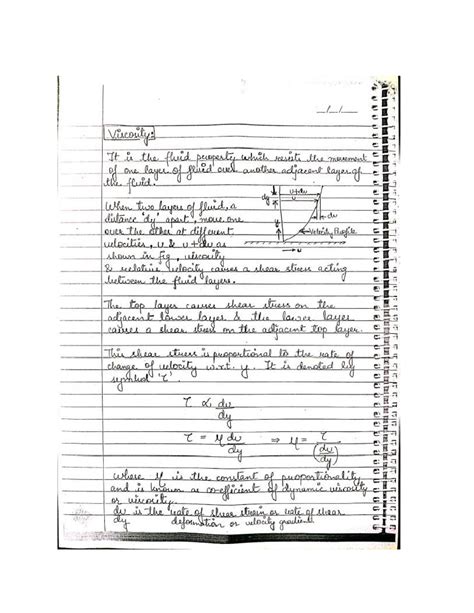 __/__/__
Viscosity:
It is the fluid property which resists the movement
of one layer of fluid over another adjacent layer of
the fluid.
When two layers of fluid, a
distance 'dy' apart, move one
over the other at different
velocities, u & u+du as
shown in fig, viscosity
& relative velocity causes a shear stress acting
between the fluid layers.
dy
u+du
du
u
y
Velocity Profile
The top layer causes shear stress on the
adjacent lower layer & the lower layer
causes a shear stress on the adjacent top layer.
This shear stress is proportional to the rate of
change of velocity w.r.t. y. It is denoted by
symbol 'τ'.
τ ∝ du/dy
τ = μ du/dy ⇒ μ = τ/(du/dy)
where μ is the constant of proportionality
and is known as co-efficient of dynamic viscosity
or viscosity.
du/dy is the rate of shear strain or rate of shear
deformation or velocity gradient